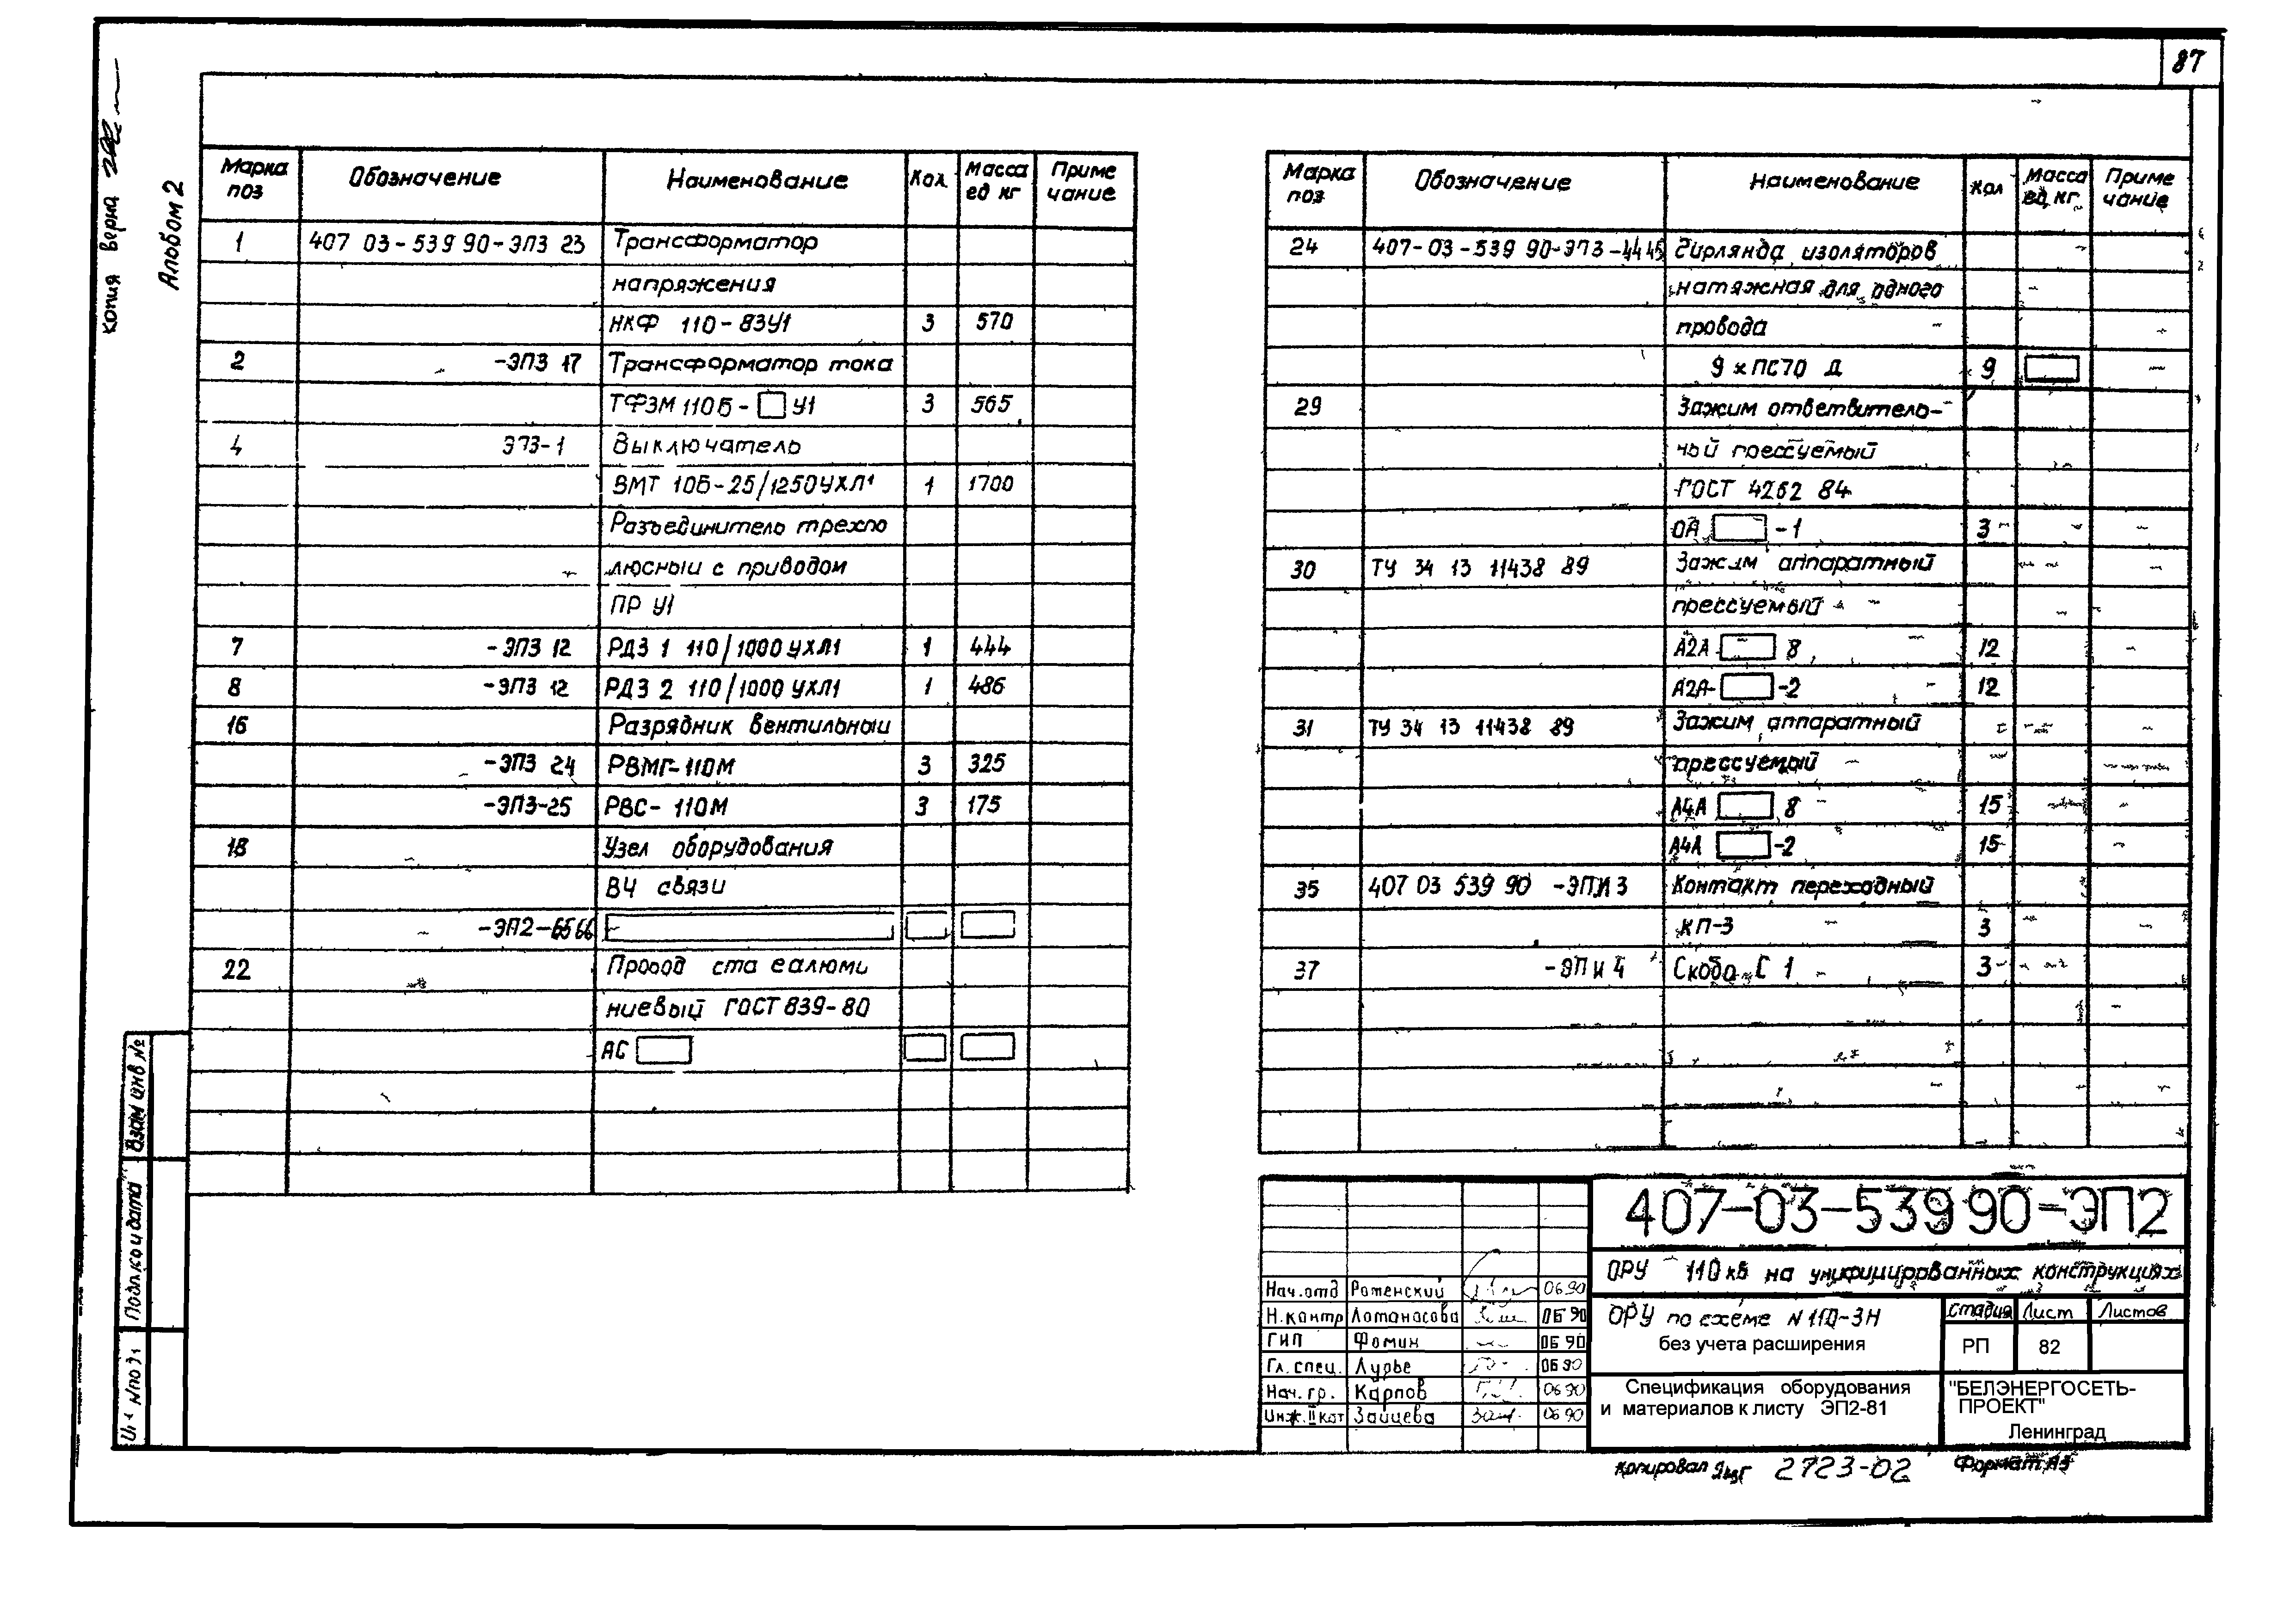 87
копия верна
Альбом 2
Марка поз Обозначение Наименование Кол. Масса ед кг Приме чание
1 407 03-539 90-ЭП3 23 Трансформатор
напряжения
НКФ 110-83У1 3 570
2 -ЭП3 17 Трансформатор тока
ТФЗМ 110Б-□ У1 3 565
4 ЭП3-1 Выключатель
ВМТ 10Б-25/1250УХЛ1 1 1700
Разъединитель трехпо
люсный с приводом
ПР У1
7 -ЭП3 12 РДЗ 1 110/1000 УХЛ1 1 444
8 -ЭП3 12 РДЗ 2 110/1000 УХЛ1 1 486
16 Разрядник вентильный
-ЭП3 24 РВМГ-110М 3 325
-ЭП3-25 РВС-110М 3 175
18 Узел оборудования
ВЧ связи
-ЭП2-65 66
22 Провод ста еалюми
ниевый ГОСТ 839-80
АС
Марка поз Обозначение Наименование Кол Масса ед. кг. Приме чание
24 407-03-539 90-ЭП3-44 45 Гирлянда изоляторов
натяжная для одного
провода
9 х ПС70 Д 9
29 Зажим ответвитель-
ный прессуемый
ГОСТ 4262 84
ОА □ -1 3
30 ТУ 34 13 11438 89 Зажим аппаратный
прессуемый
А2А □ 8 12
А2А-□-2 12
31 ТУ 34 13 11438 89 Зажим аппаратный
прессуемый
А4А □ 8 15
А4А □-2 15
35 407 03 539 90 -ЭП.И 3 Контакт переходный
КП-3 3
37 -ЭП И 4 Скоба С 1 3
Взам инв №
Подпись и дата
Инв № подл
407-03-539 90-ЭП2
ОРУ 110 кВ на унифицированных конструкциях
Нач.отд Роменский 06 90
Н.контр Ломаносова 06 90
ГИП Фомин 06 90
Гл. спец. Лурье 06 90
Нач. гр. Карпов 06 90
Инж. II кат Зайцева 06 90
ОРУ по схеме N 110-3Н
без учета расширения
Стадия Лист Листов
РП 82
Спецификация оборудования
и материалов к листу ЭП2-81
"БЕЛЭНЕРГОСЕТЬ-
ПРОЕКТ"
Ленинград
Копировал 2723-02 Формат А3